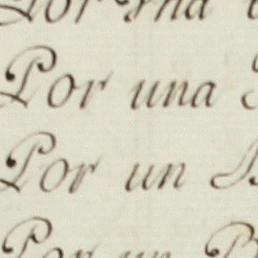 Por una
Por una
Por un
Por un